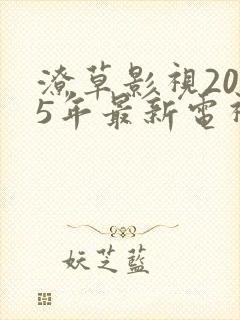 潦草影視20
5年最新電視
妖芝藍